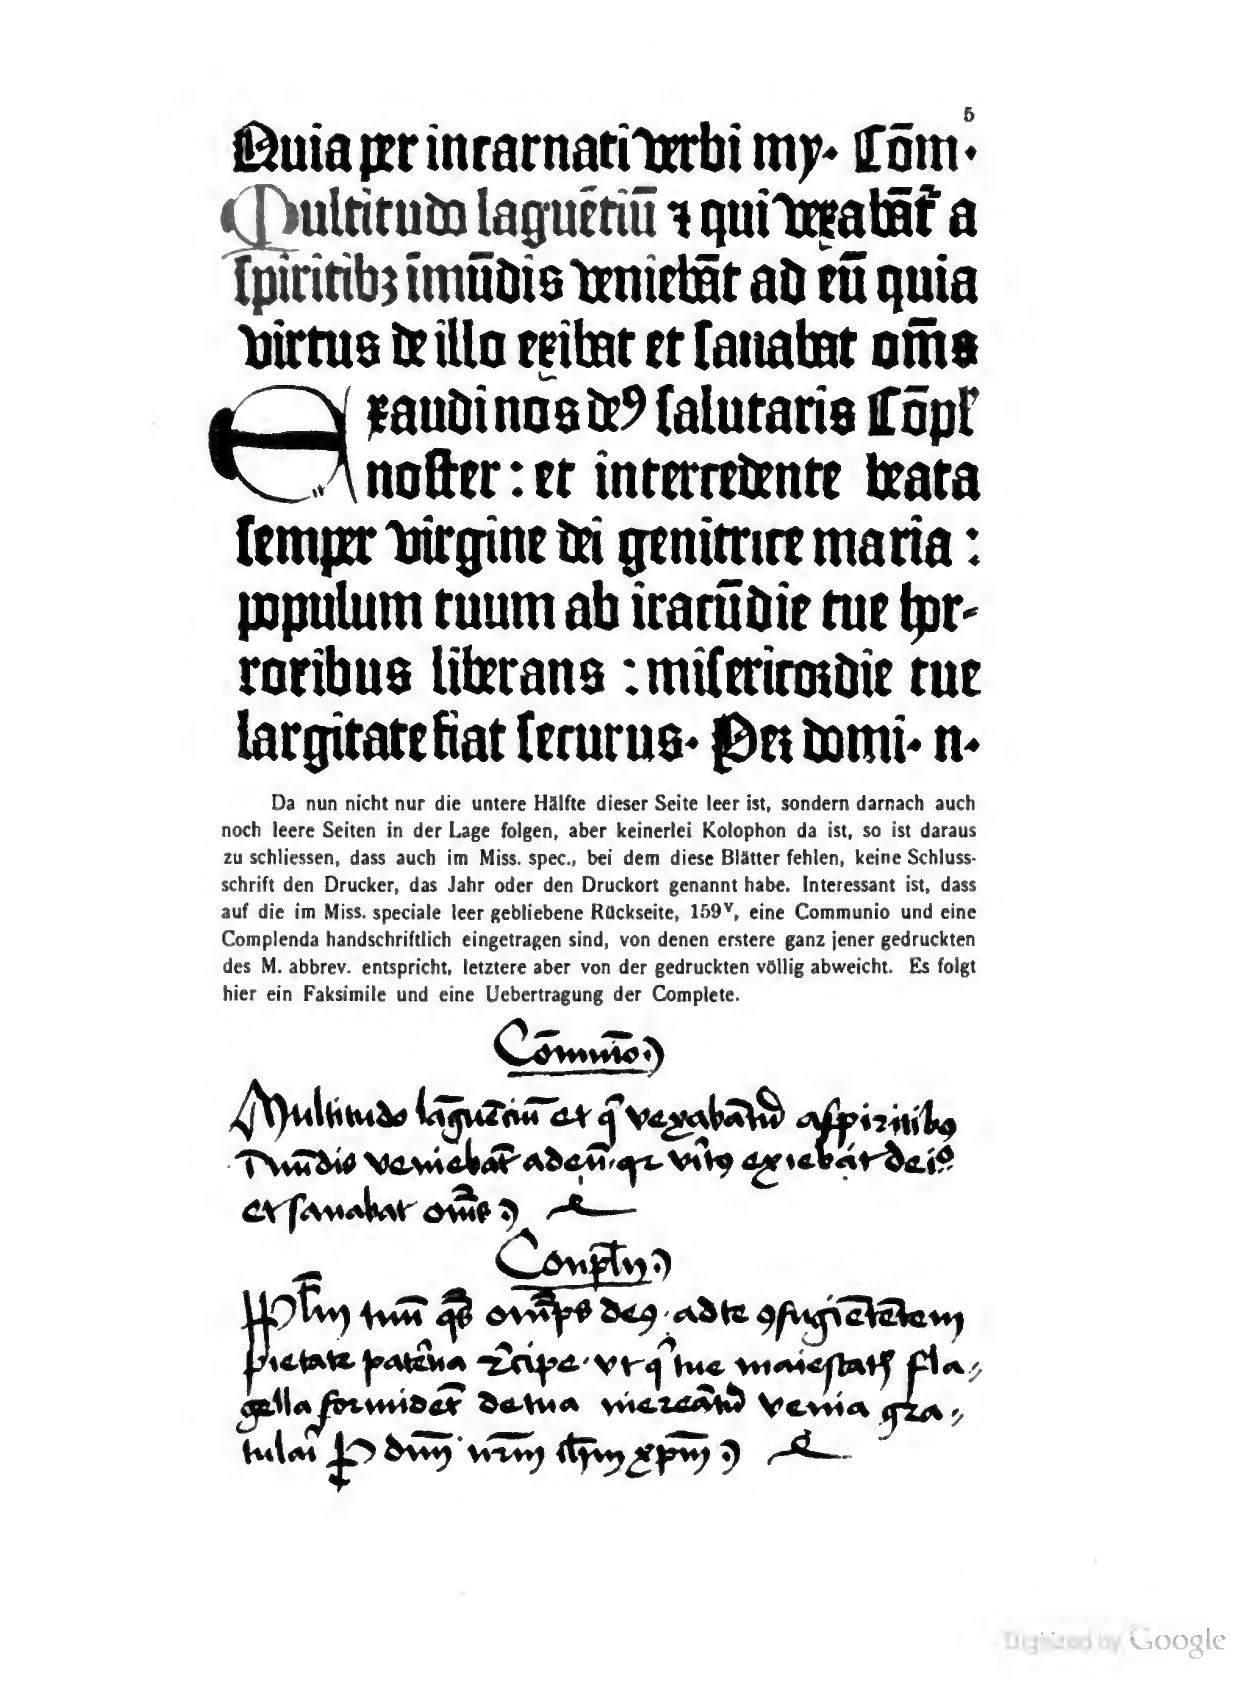 5
Quia per incarnati verbi my. Cōm.
Multitudo lāguētiū ⁊ qui vexabāt᷑ a
ſpiritibꝫ īmūdis veniebāt ad eū quia
virtus de illo exibat et ſanabat om̄s
Exaudi nos deꝰ ſalutaris Cōpl᷑
noſter : et intercedente beata
ſemper virgine dei genitrice maria :
populum tuum ab iracūdie tue ter-
roribus liberans : miſericoꝛdie tue
largitate fiat ſecurus. Peꝛ domi. n.
Da nun nicht nur die untere Hälfte dieser Seite leer ist, sondern darnach auch
noch leere Seiten in der Lage folgen, aber keinerlei Kolophon da ist, so ist daraus
zu schliessen, dass auch im Miss. spec., bei dem diese Blätter fehlen, keine Schluss-
schrift den Drucker, das Jahr oder den Druckort genannt habe. Interessant ist, dass
auf die im Miss. speciale leer gebliebene Rückseite, 159ᵛ, eine Communio und eine
Complenda handschriftlich eingetragen sind, von denen erstere ganz jener gedruckten
des M. abbrev. entspricht, letztere aber von der gedruckten völlig abweicht. Es folgt
hier ein Faksimile und eine Uebertragung der Complete.
Cōmūio
Multitudo lāguētiū et q̇ vexabāt᷑ a ſpiritibꝰ
īmūdis veniebāt ad eū qꝛ virtꝰ exiebat de iº
et ſanabat om̄s
Conpl᷑
Pl̄m tuū qs̄ om̄ps deꝰ ad te ꝯfugiētētem
pietate pat̄na ꝛcipe vt q̇ tue maieſtatꝭ fla-
gella formidet de tua mereat᷑ venia gra-
tulari P dm̄ nr̄m ih̄m xp̄m
Digitized by Google